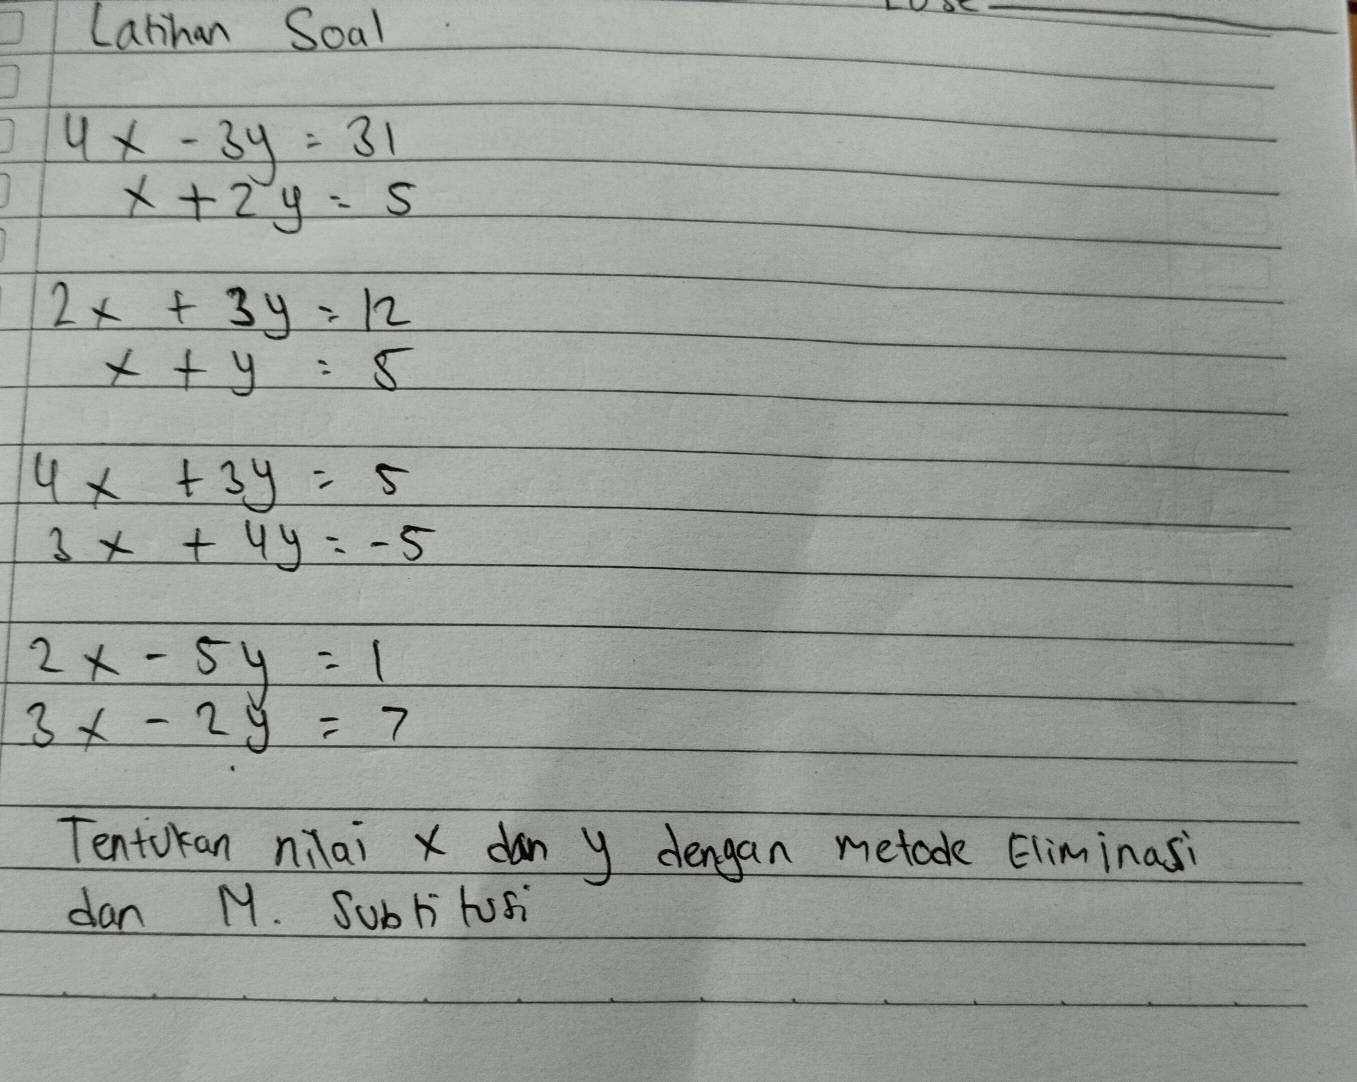 Latihan Soal
4x - 3y = 31
x + 2y = 5
2x + 3y = 12
x + y = 5
4x + 3y = 5
3x + 4y = -5
2x - 5y = 1
3x - 2y = 7
Tentukan nilai x dan y dengan metode Eliminasi
dan M. Subtitusi